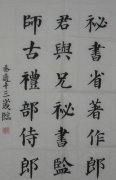 祕書省著作郎
君與兄祕書監
師古禮部侍郎
十三歲臨